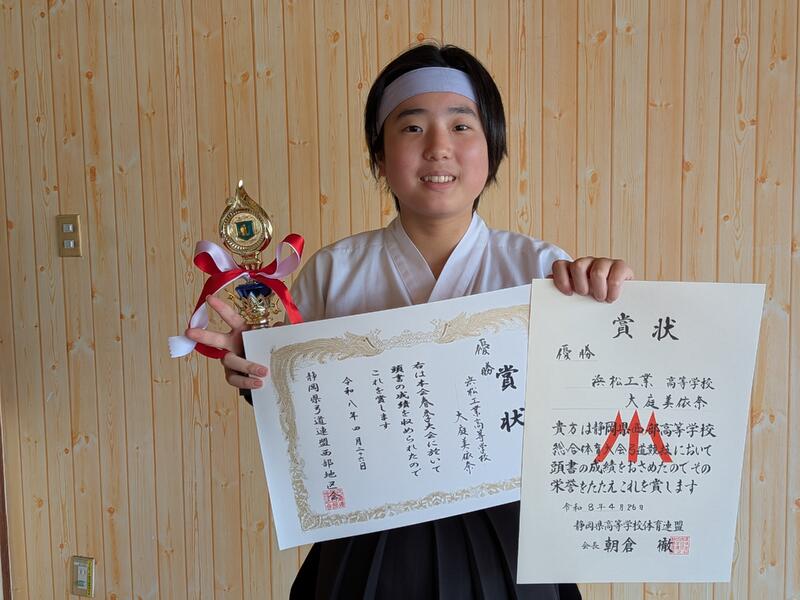 賞状
優勝
浜松工業高等学校
大庭美依奈
右は本会春季大会に於いて
頭書の成績を収められたので
これを賞します
令和八年四月二六日
静岡県弓道連盟西部地区会
賞状
優勝
浜松工業 高等学校
大庭美依奈
貴方は静岡県西部高等学校
総合体育大会弓道競技において
頭書の成績をおさめたのでその
栄誉をたたえこれを賞します
令和 8年4月26日
静岡県高等学校体育連盟
会長 朝倉 徹